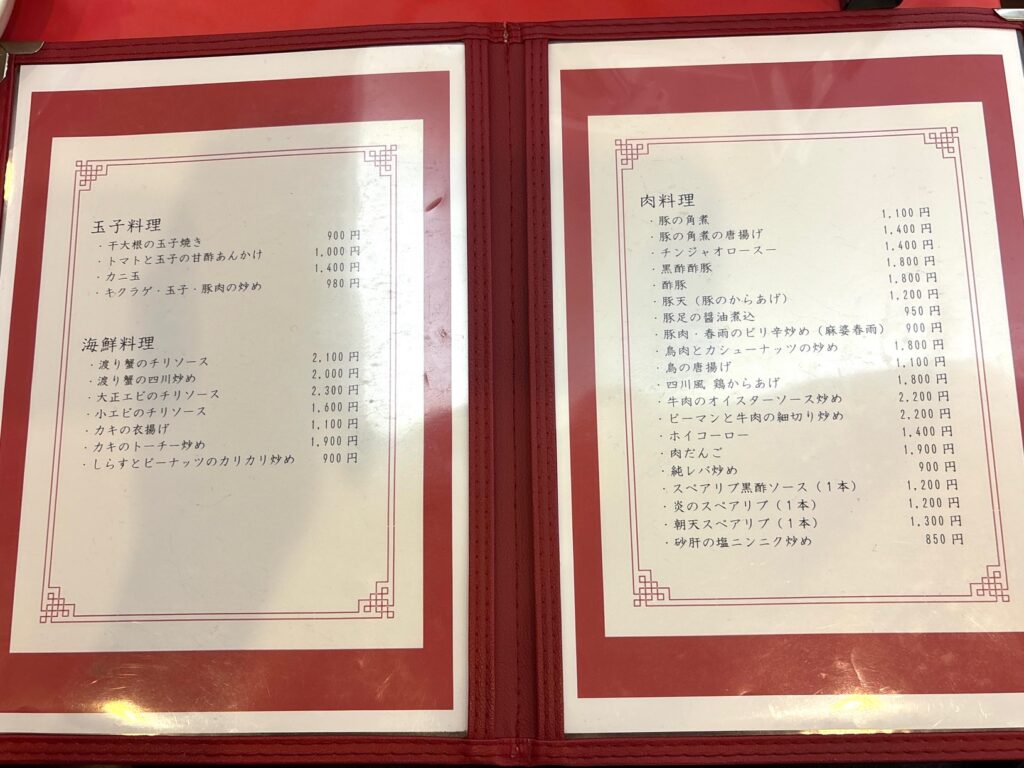 玉子料理
・干大根の玉子焼き 900円
・トマトと玉子の甘酢あんかけ 1,000円
・カニ玉 1,400円
・キクラゲ・玉子・豚肉の炒め 980円
海鮮料理
・渡り蟹のチリソース 2,100円
・渡り蟹の四川炒め 2,000円
・大正エビのチリソース 2,300円
・小エビのチリソース 1,600円
・カキの衣揚げ 1,100円
・カキのトーチー炒め 1,900円
・しらすとピーナッツのカリカリ炒め 900円
肉料理
・豚の角煮 1,100円
・豚の角煮の唐揚げ 1,400円
・チンジャオロースー 1,400円
・黒酢酢豚 1,800円
・酢豚 1,800円
・豚天（豚のからあげ） 1,200円
・豚足の醤油煮込 950円
・豚肉・春雨のピリ辛炒め（麻婆春雨） 900円
・鳥肉とカシューナッツの炒め 1,800円
・鳥の唐揚げ 1,100円
・四川風 鶏からあげ 1,800円
・牛肉のオイスターソース炒め 2,200円
・ピーマンと牛肉の細切り炒め 2,200円
・ホイコーロー 1,400円
・肉だんご 1,900円
・純レバ炒め 900円
・スペアリブ黒酢ソース（１本） 1,200円
・炎のスペアリブ（１本） 1,200円
・朝天スペアリブ（１本） 1,300円
・砂肝の塩ニンニク炒め 850円